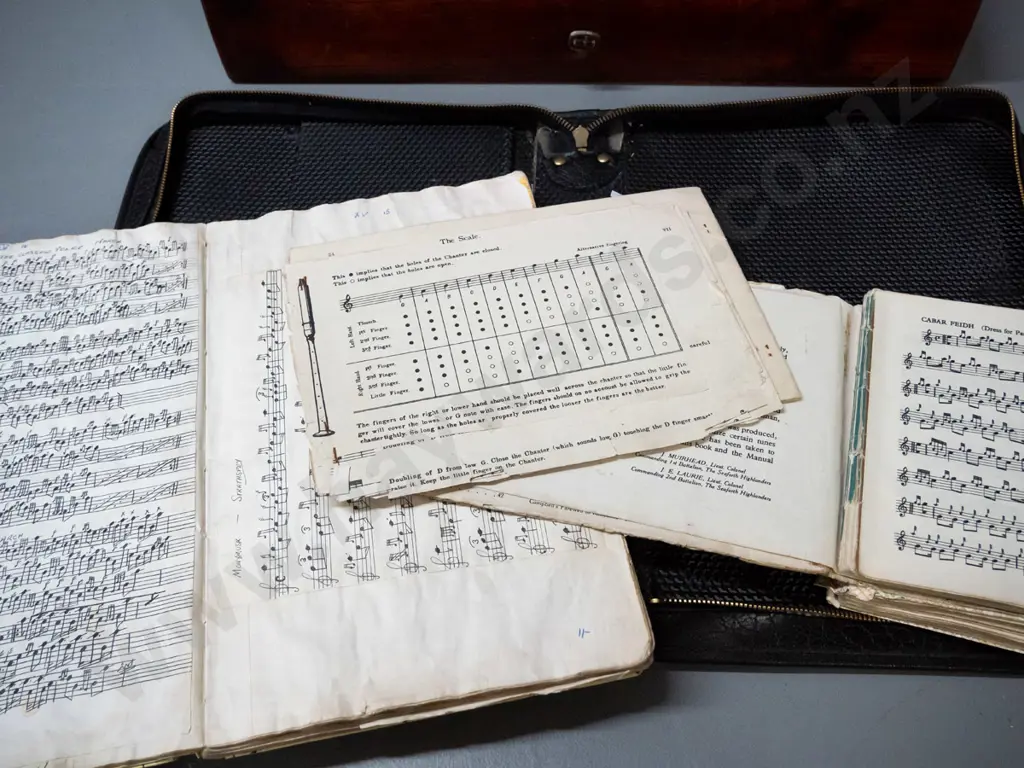 The Scale.
VII
This ● implies that the holes of the Chanter are closed.
This ○ implies that the holes are open.
Alternative Fingering
G A B C D E F G A
Left Hand
Thumb
1st Finger.
2nd Finger.
3rd Finger.
Right Hand
1st Finger.
2nd Finger.
3rd Finger.
Little Finger.
careful
The fingers of the right or lower hand should be placed well across the chanter so that the little fin-
ger will cover the lower G note with ease. The fingers should on no account be allowed to grip the
chanter tightly. So long as the holes ar properly covered the looser the fingers are the better.
Doubling of D from low G. Close the Chanter (which sounds low G) touching the D finger smar
raise it. Keep the little finger on the Chanter.
produced,
certain tunes
has been taken to
book and the Manual
MUIRHEAD, Lieut. Colonel
Commanding 1st Battalion, The Seaforth Highlanders
J. E. LAURIE, Lieut. Colonel
Commanding 2nd Battalion, The Seaforth Highlanders
42
CABAR FEIDH (Dress for Pa
15